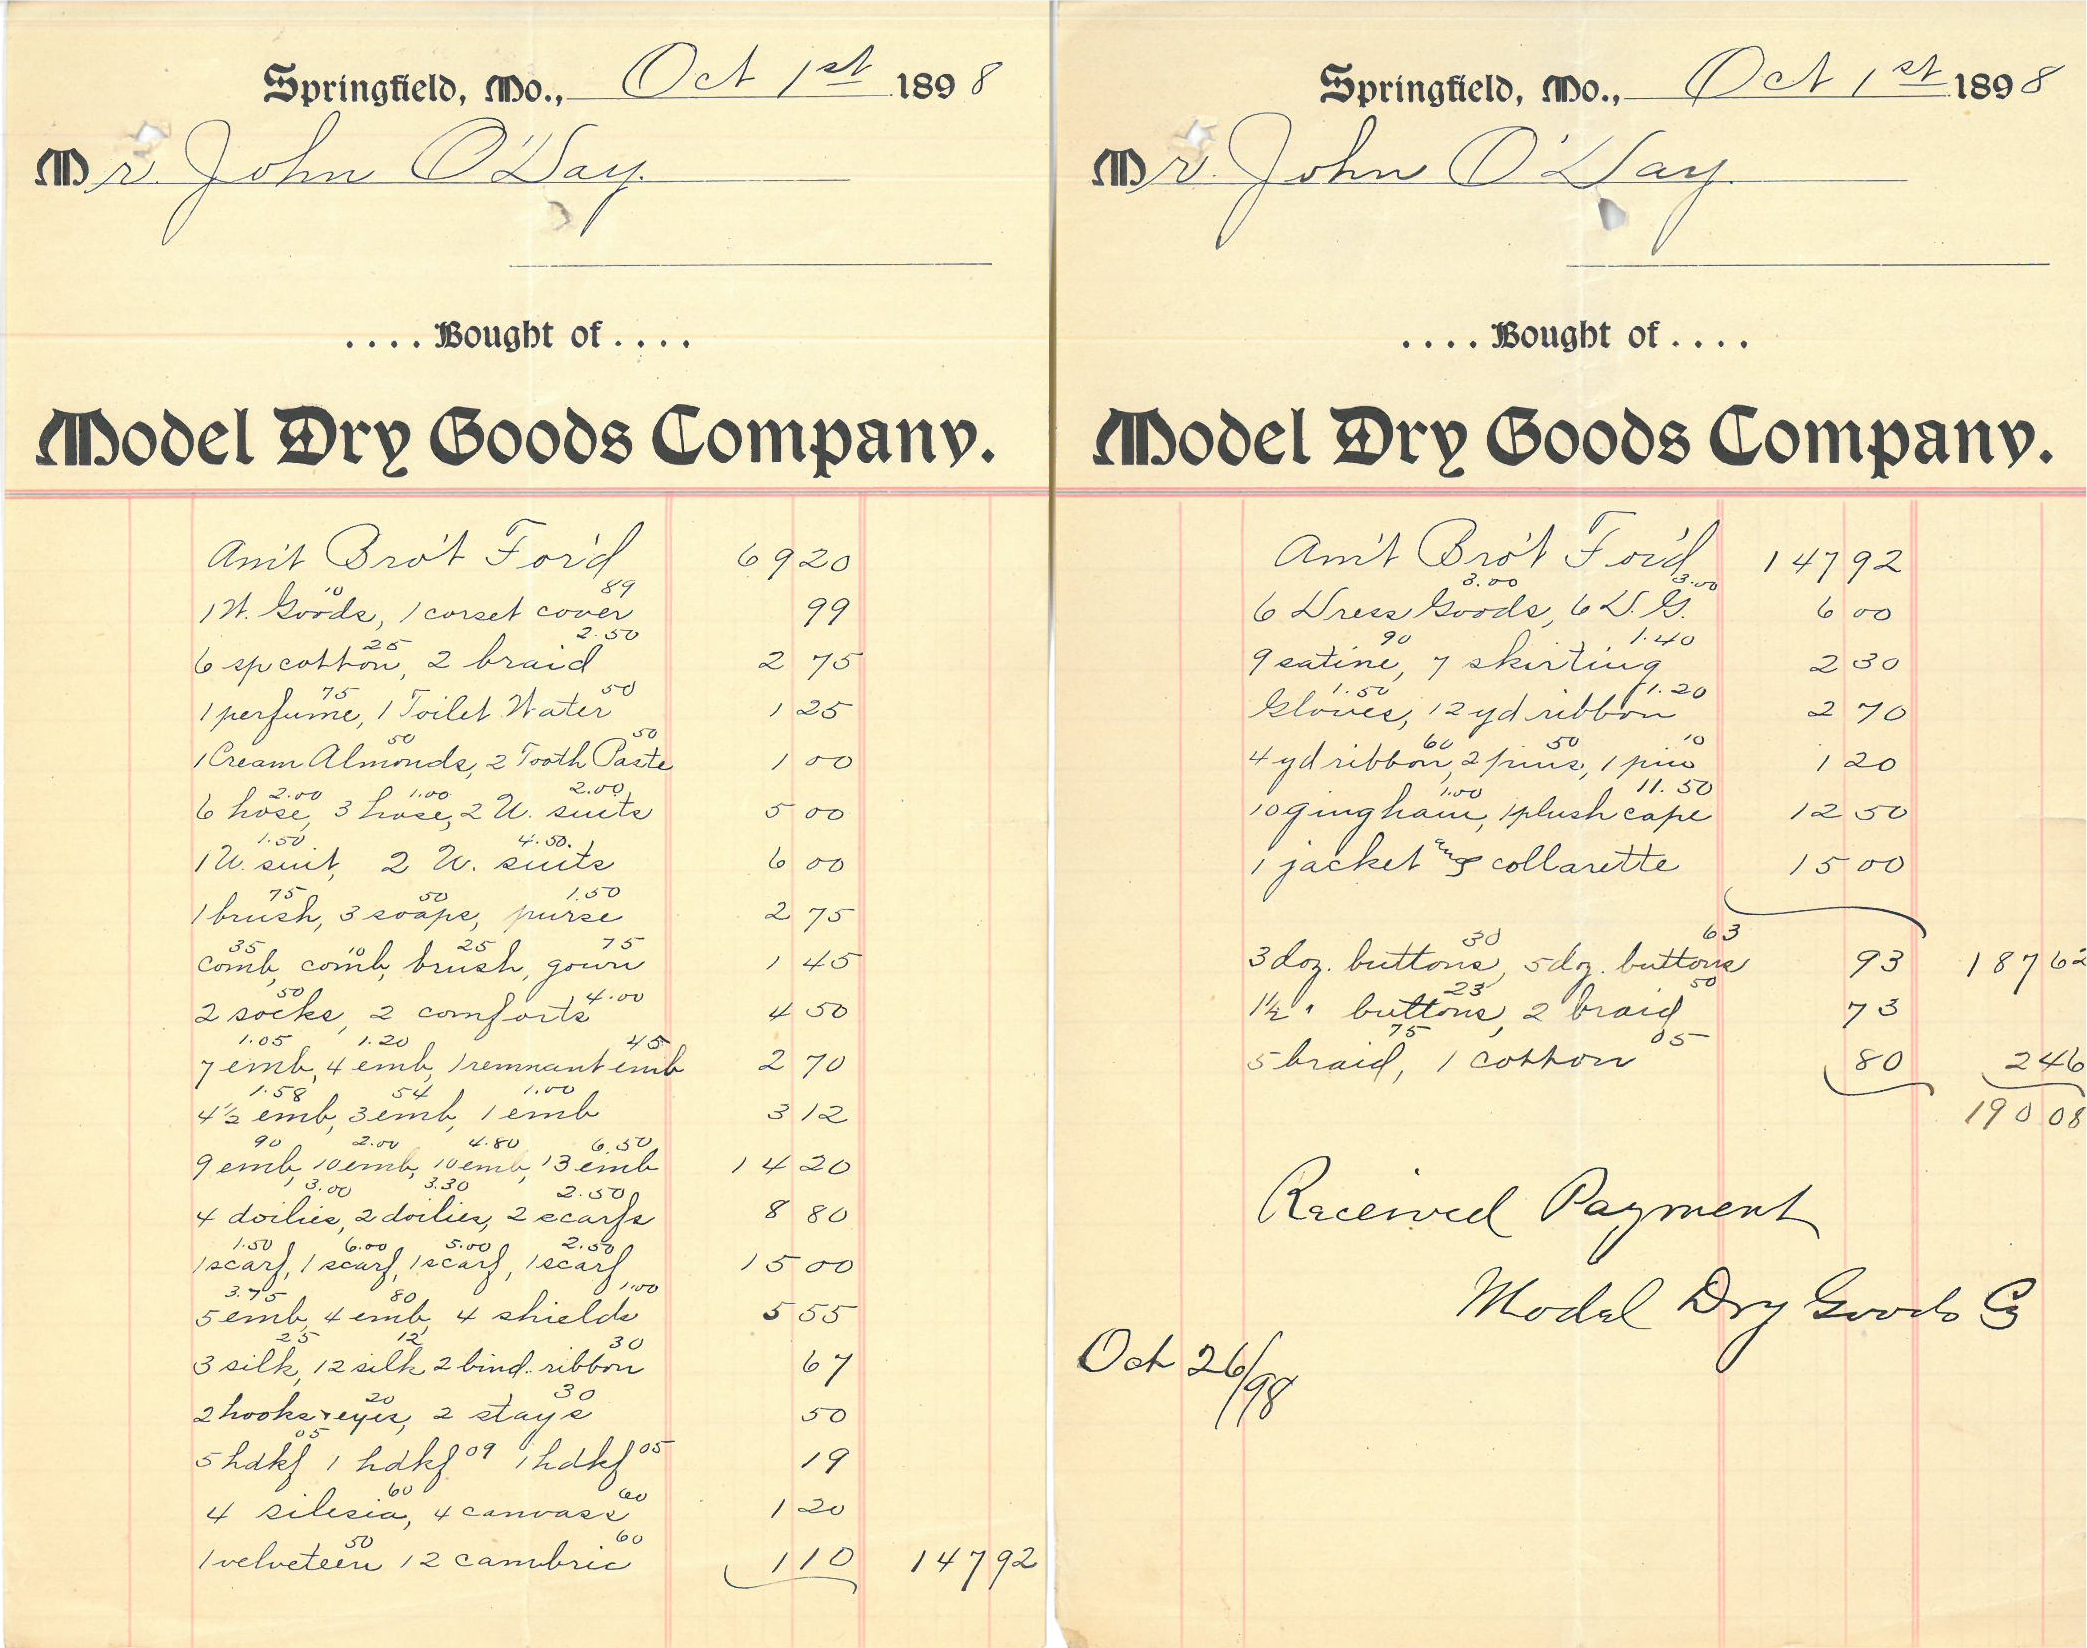 Springfield, Mo., Oct 1st 1898
Mr. John O'Day.
.... Bought of ....
Model Dry Goods Company.
Am't Bro't For'd 69 20
10 89
1 W. Goods, 1 corset cover 99
25 2.50
6 sp cotton, 2 braid 2 75
75 50
1 perfume, 1 Toilet Water 1 25
50 50
1 Cream Almonds, 2 Tooth Paste 1 00
2.00 1.00 2.00
6 hose, 3 hose, 2 U. suits 5 00
1.50 4.50.
1 U. suit, 2 U. suits 6 00
75 50 1.50
1 brush, 3 soaps, purse 2 75
35 10 25 75
comb, comb, brush, gown 1 45
50 4.00
2 socks, 2 comforts 4 50
1.05 1.20 45
7 emb, 4 emb, 1 remnant emb 2 70
1.58 54 1.00
4½ emb, 3 emb, 1 emb 3 12
90 2.00 4.80 6.50
9 emb, 10 emb, 10 emb, 13 emb 14 20
3.00 3.30 2.50
4 doilies, 2 doilies, 2 scarfs 8 80
1.50 6.00 5.00 2.50
1 scarf, 1 scarf, 1 scarf, 1 scarf 15 00
3.75 80 1.00
5 emb, 4 emb, 4 shields 5 55
25 12 30
3 silk, 12 silk 2 bind. ribbon 67
20 30
2 hooks + eyes, 2 stays 50
05
5 hdkf 1 hdkf 09 1 hdkf 05 19
60 60
4 silesia, 4 canvass 1 20
50 60
1 velveteen 12 cambric 1 10 147 92
Springfield, Mo., Oct 1st 1898
Mr. John O'Day.
.... Bought of ....
Model Dry Goods Company.
Am't Bro't For'd 147 92
3.00 3.00
6 Dress Goods, 6 D. G. 6 00
90 1.40
9 satine, 7 skirting 2 30
1.50 1.20
Gloves, 12 yd ribbon 2 70
60 50 10
4 yd ribbon, 2 pins, 1 pin 1 20
1.00 11.50
10 gingham, 1 plush cape 12 50
1 jacket and collarette 15 00
30 63
3 doz. buttons, 5 dz. buttons 93 187 62
23 50
1½ " buttons, 2 braid 73
75 05
5 braid, 1 cotton 80 2 46
190 08
Received Payment
Model Dry Goods Co
Oct 26/98